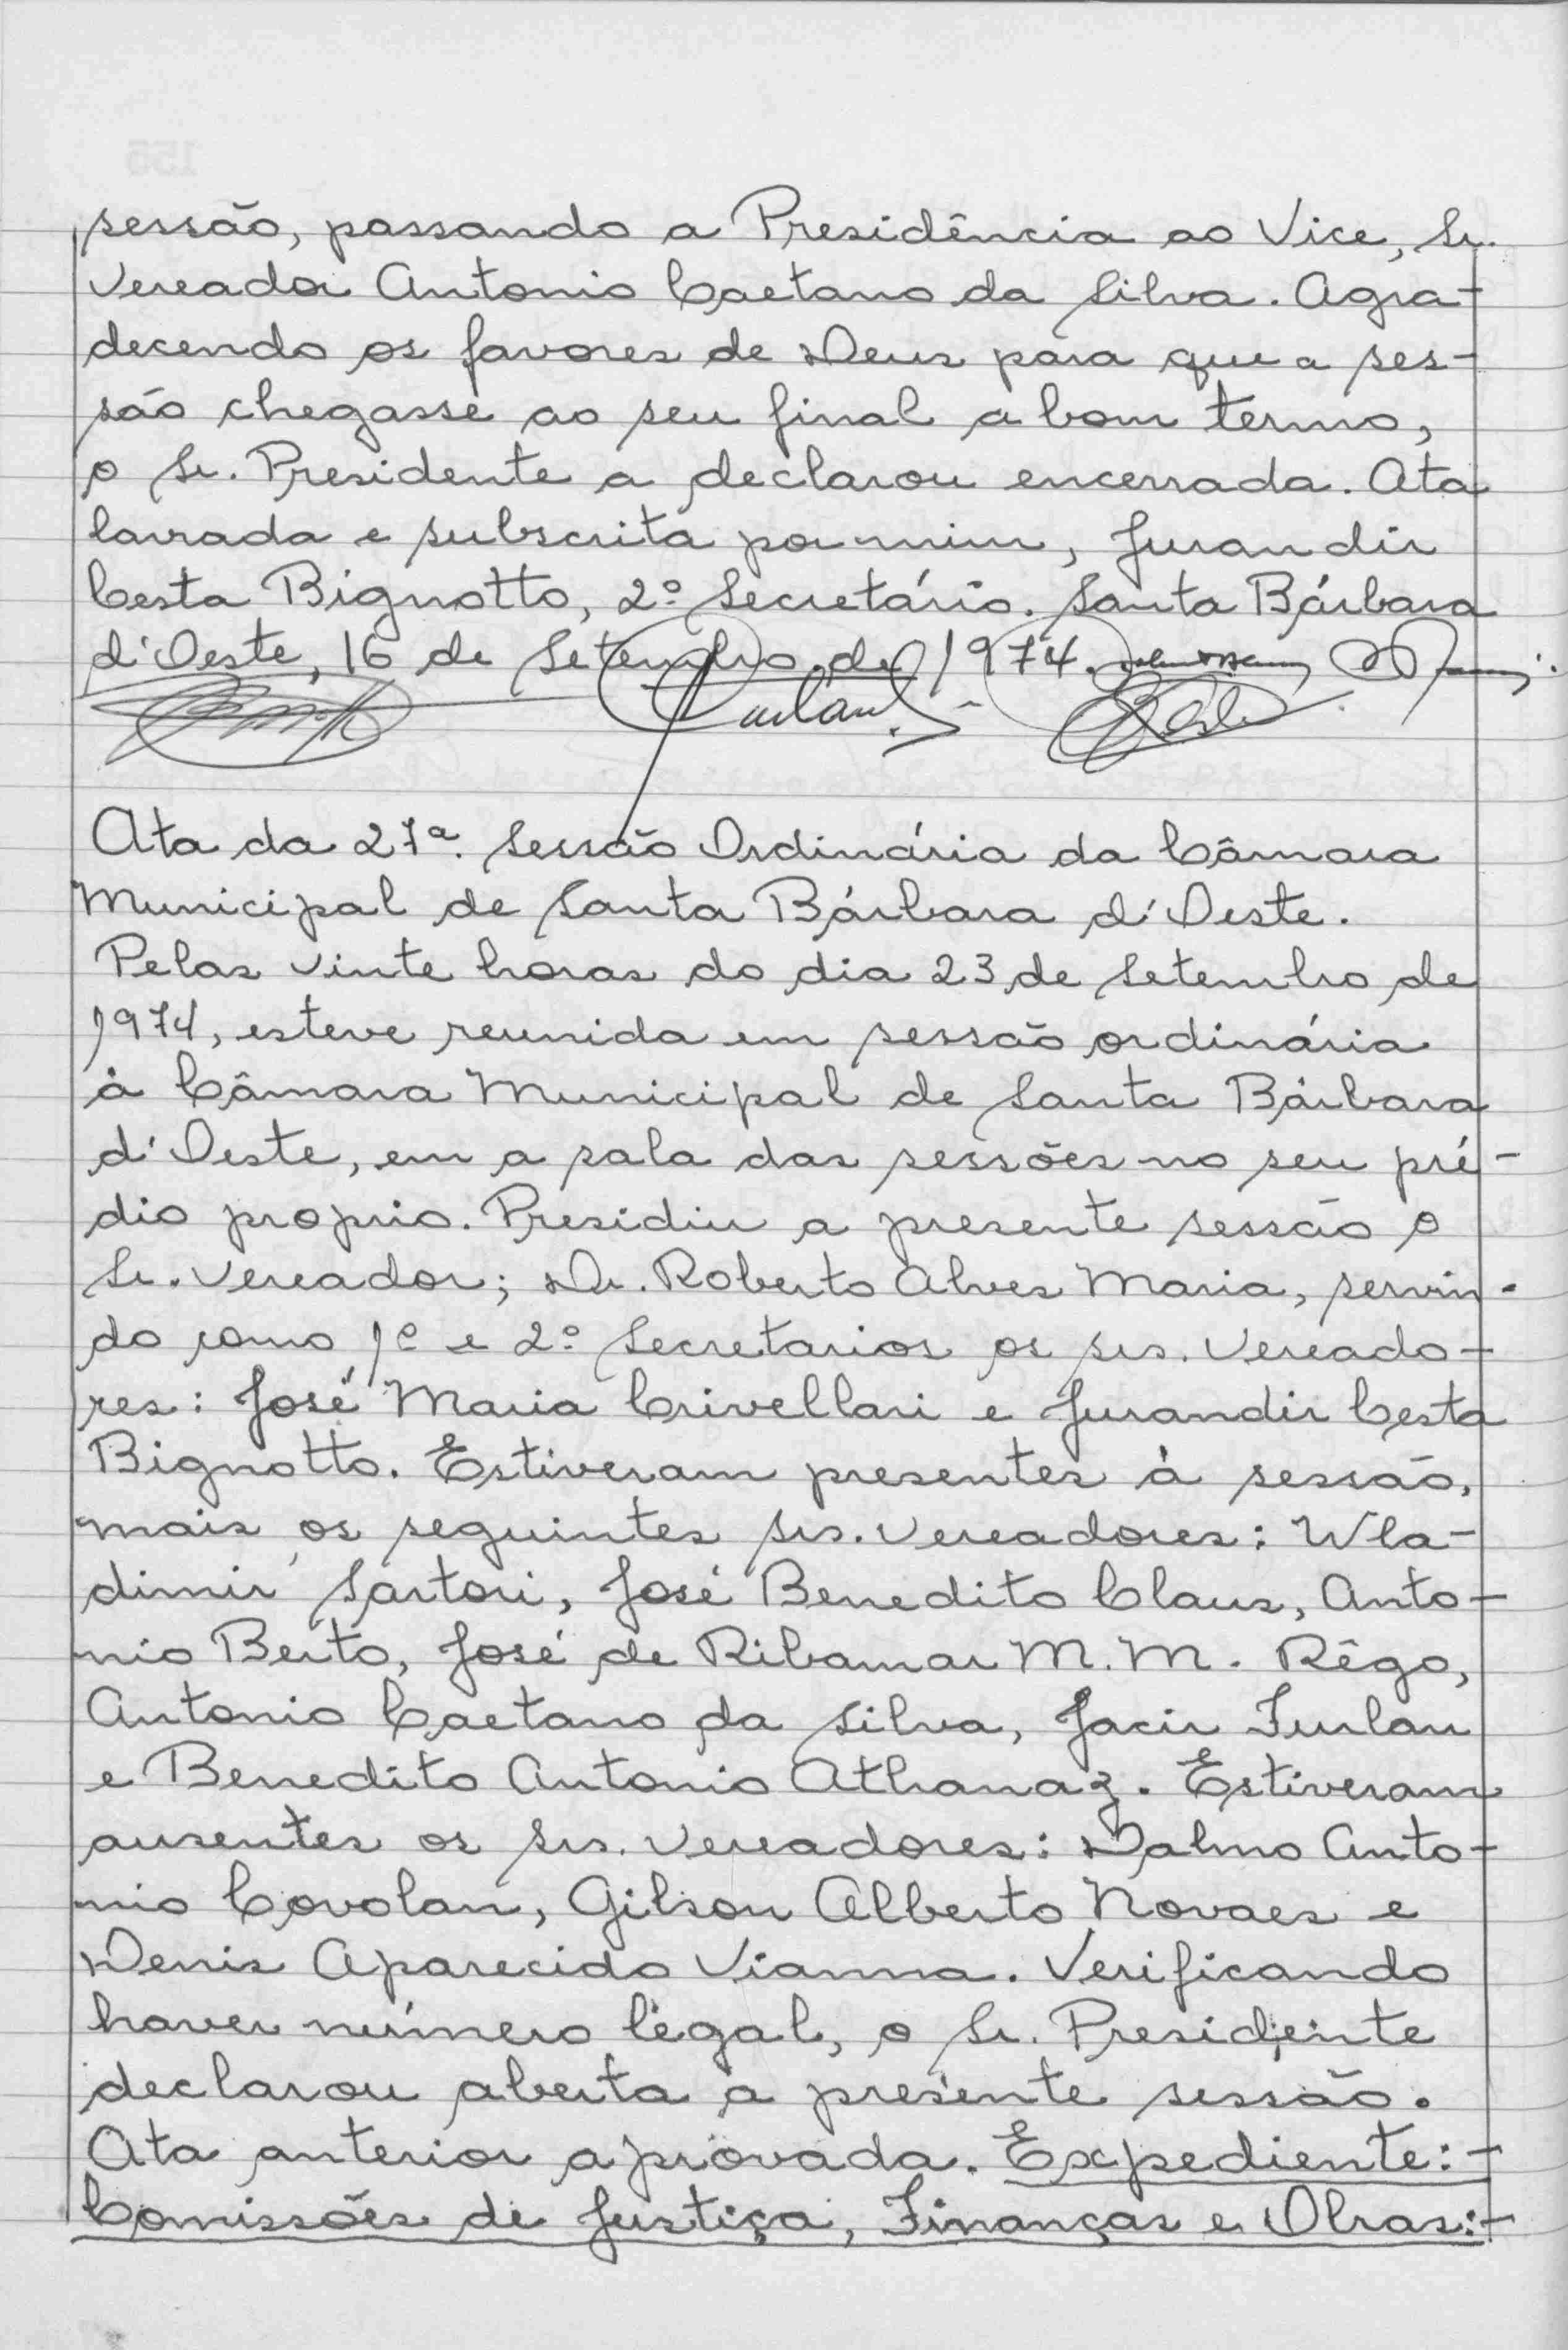 sessão, passando a Presidência ao Vice, Sr.
Vereador Antonio Caetano da Silva. Agra-
decendo os favores de Deus para que a ses-
são chegasse ao seu final a bom termo,
o Sr. Presidente a declarou encerrada. Ata
lavrada e subscrita por mim, Jurandir
Cesta Bignotto, 2º Secretário. Santa Bárbara
d'Oeste, 16 de Setembro de 1974.
Ata da 27ª. Sessão Ordinária da Câmara
Municipal de Santa Bárbara d'Oeste.
Pelas vinte horas do dia 23 de Setembro de
1974, esteve reunida em sessão ordinária
à Câmara Municipal de Santa Bárbara
d'Oeste, em a sala das sessões no seu pré-
dio proprio. Presidiu a presente sessão o
Sr. Vereador; Dr. Roberto Alves Maria, servin-
do como 1º e 2º Secretarios os srs. Vereado-
res: José Maria Crivellari e Jurandir Cesta
Bignotto. Estiveram presentes à sessão,
mais os seguintes srs. Vereadores: Wla-
dimir Sartori, José Benedito Claus, Anto-
nio Berto, José de Ribamar M. M. Rêgo,
Antonio Caetano da Silva, Jacir Furlan
e Benedito Antonio Athanaz. Estiveram
ausentes os srs. Vereadores: Dalmo Anto-
nio Covolan, Gilson Alberto Novaes e
Denis Aparecido Vianna. Verificando
haver número légal, o Sr. Presidente
declarou aberta a presente sessão.
Ata anterior aprovada. Expediente:-
Comissões de Justiça, Finanças e Obras:-